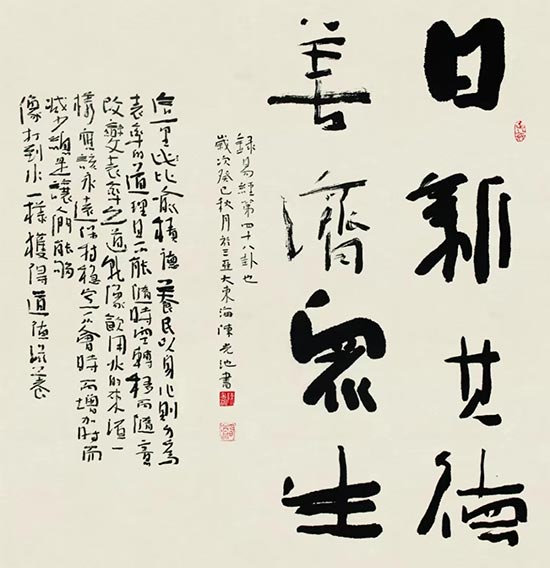 日新其德
善濟眾生
錄易經第四十八卦也
歲次癸巳秋月於三亞大東海陳光池書
這里比喻積德養民以身心則
表率的道理是不能隨時空轉移而隨意
改變表率之道就像飲用水的來源一
樣應該永遠保持穩定不會時而增加時而
減少總是讓人們能夠
像打到水一樣獲得道德滋養